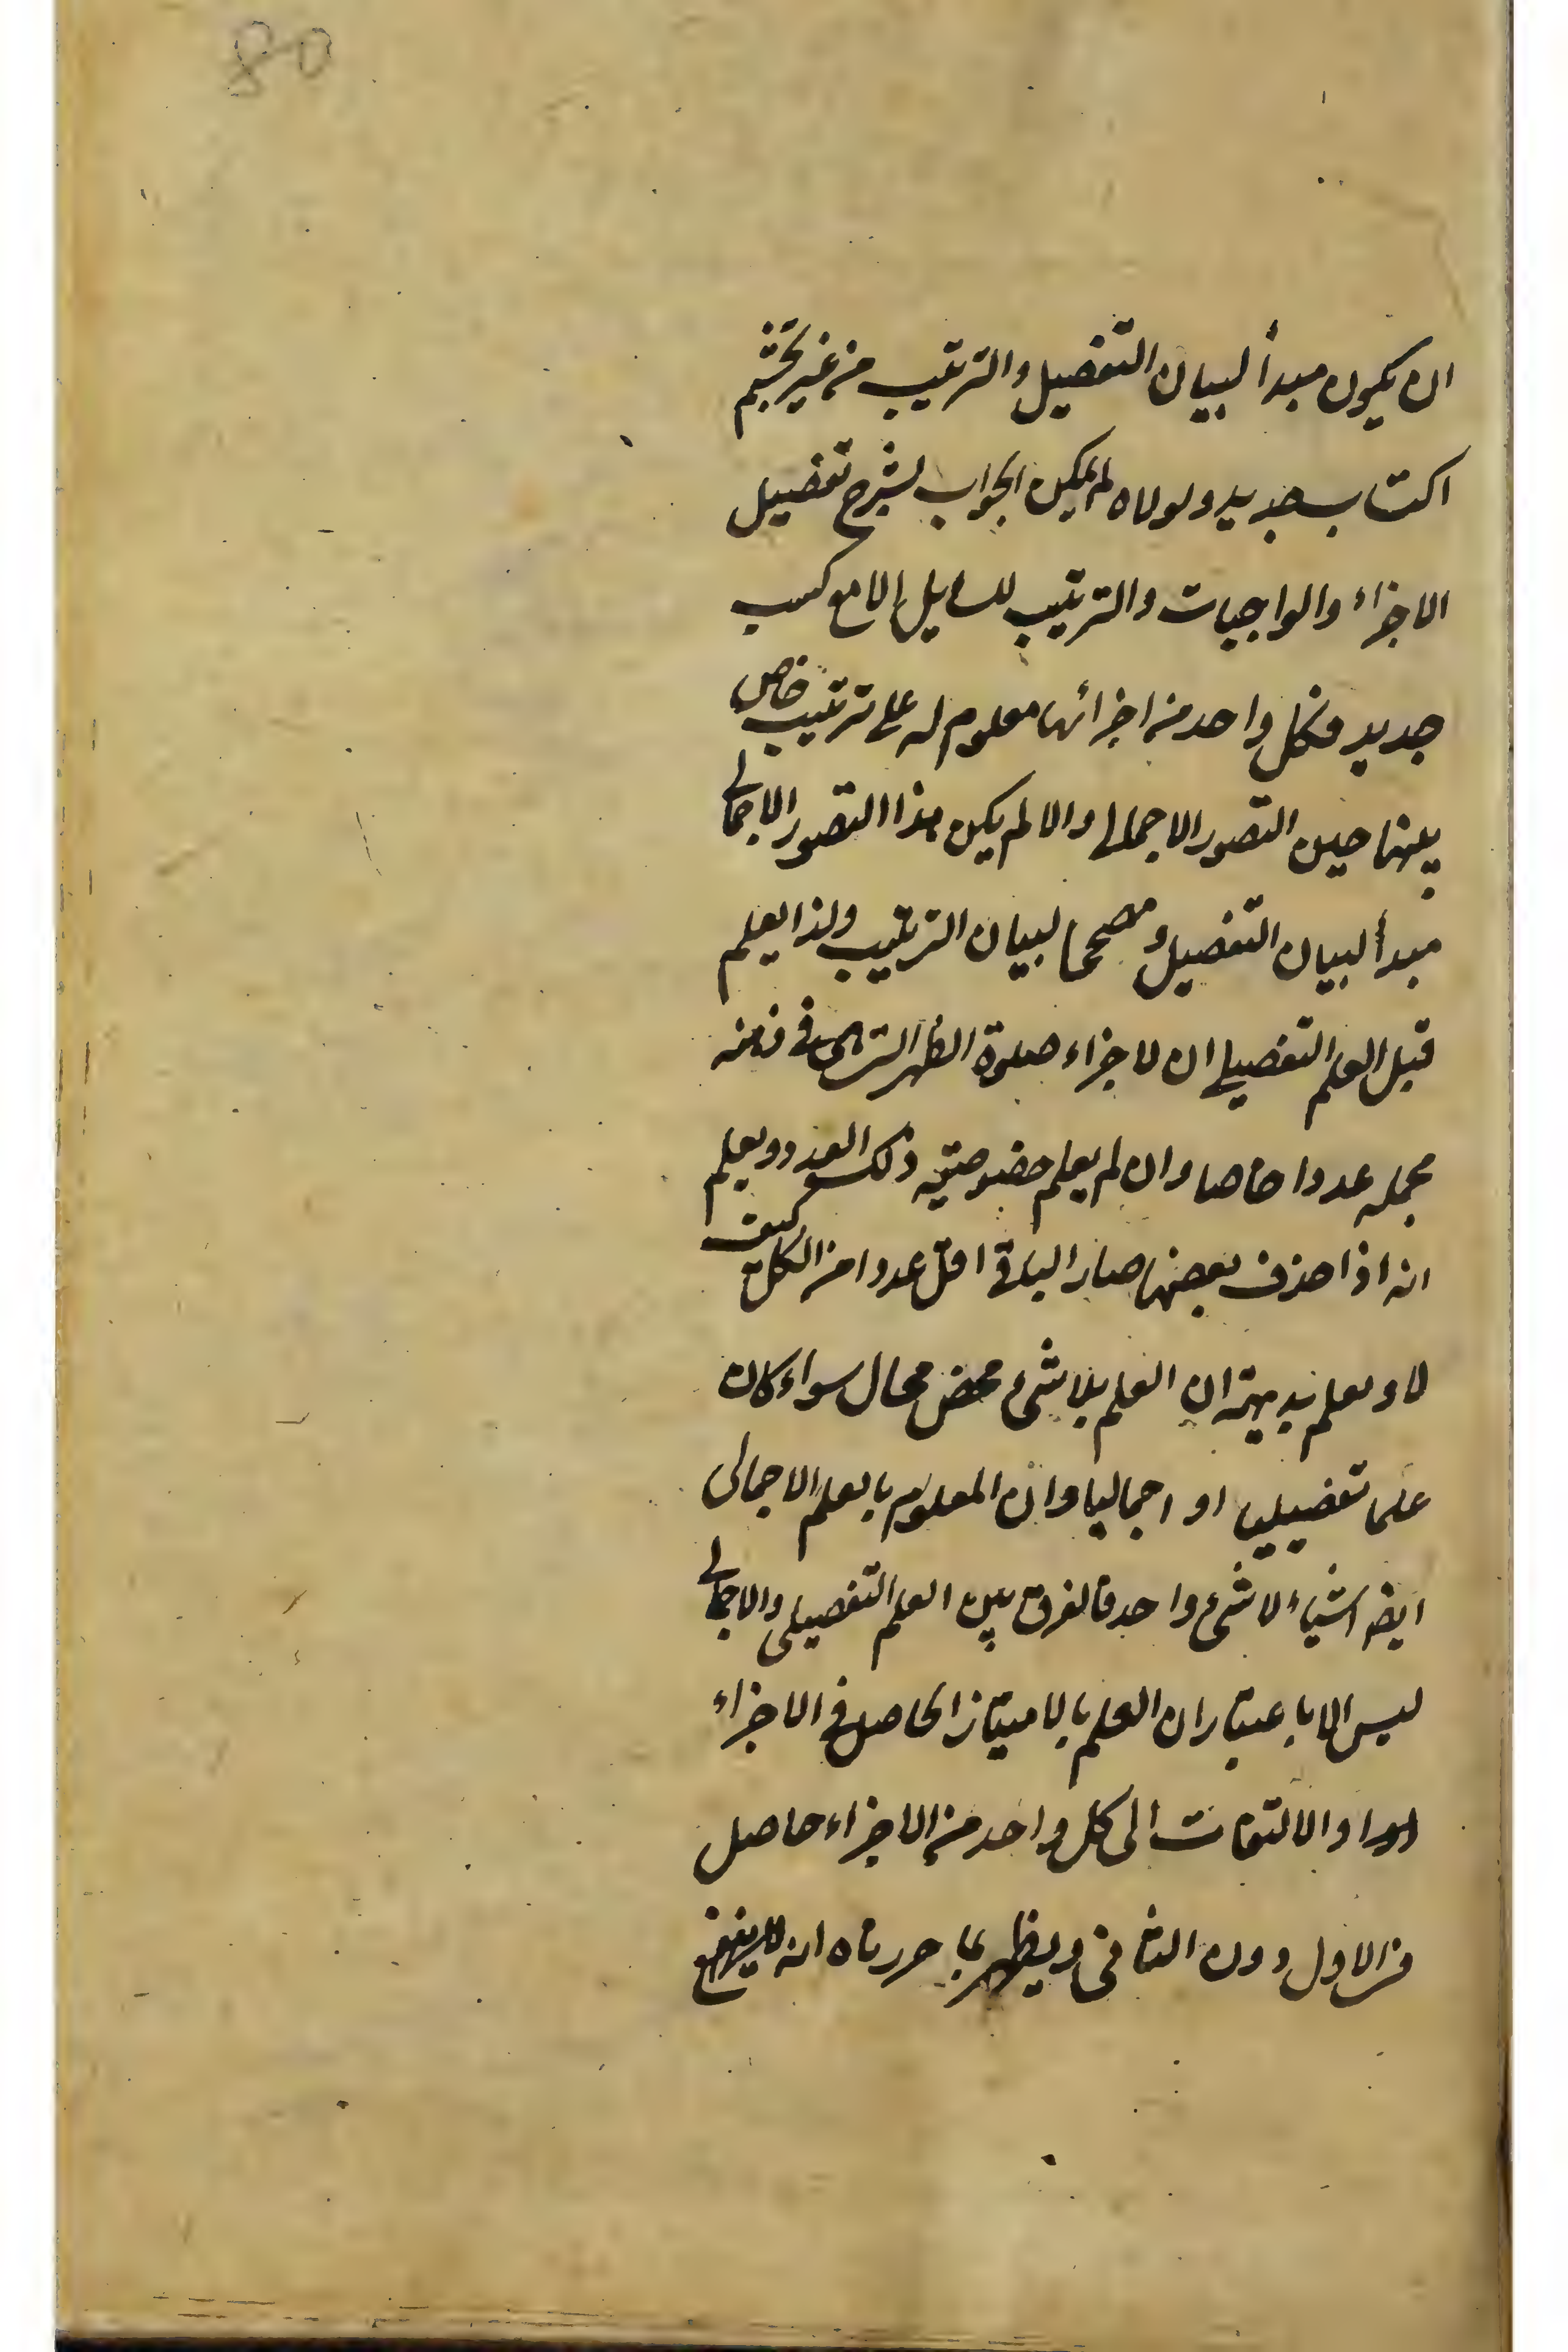 80
ان يكون مبدأ لبيان التفصيل والترتيب من غير تجشم
اكتساب جديد ولولاه لم يمكن الجواب بشرح تفصيل
الاجزاء والواجبات والترتيب للسايل الا مع كسب
جديد فكل واحد من اجزائها معلوم له على ترتيب خاص
بينها حين التصور الاجمالى والا لم يكن هذا التصور الاجمالى
مبدأ لبيان التفصيل و مصححا لبيان الترتيب ولذا يعلم
قبل العلم التفصيلى ان لاجزاء صلوة الظهر التى فى ذهنه
مجمله عددا خاصا وان لم يعلم خصوصيته ذلك العدد ويعلم
انه اذا حذف بعضها صار الباقى اقل عددا من الكل كيف
لا ويعلم بديهة ان العلم بلا شىء محض محال سواء كان
علما تفصيليا او اجماليا وان المعلوم بالعلم الاجمالى
ايضا اشياء لا شىء واحد فالفرق بين العلم التفصيلى والاجمالى
ليس الا باعتبار ان العلم بالامتياز الحاصل فى الاجزاء
والالتفات الى كل واحد من الاجزاء حاصل
فى الاول دون الثانى ويظهر بما حررناه انه